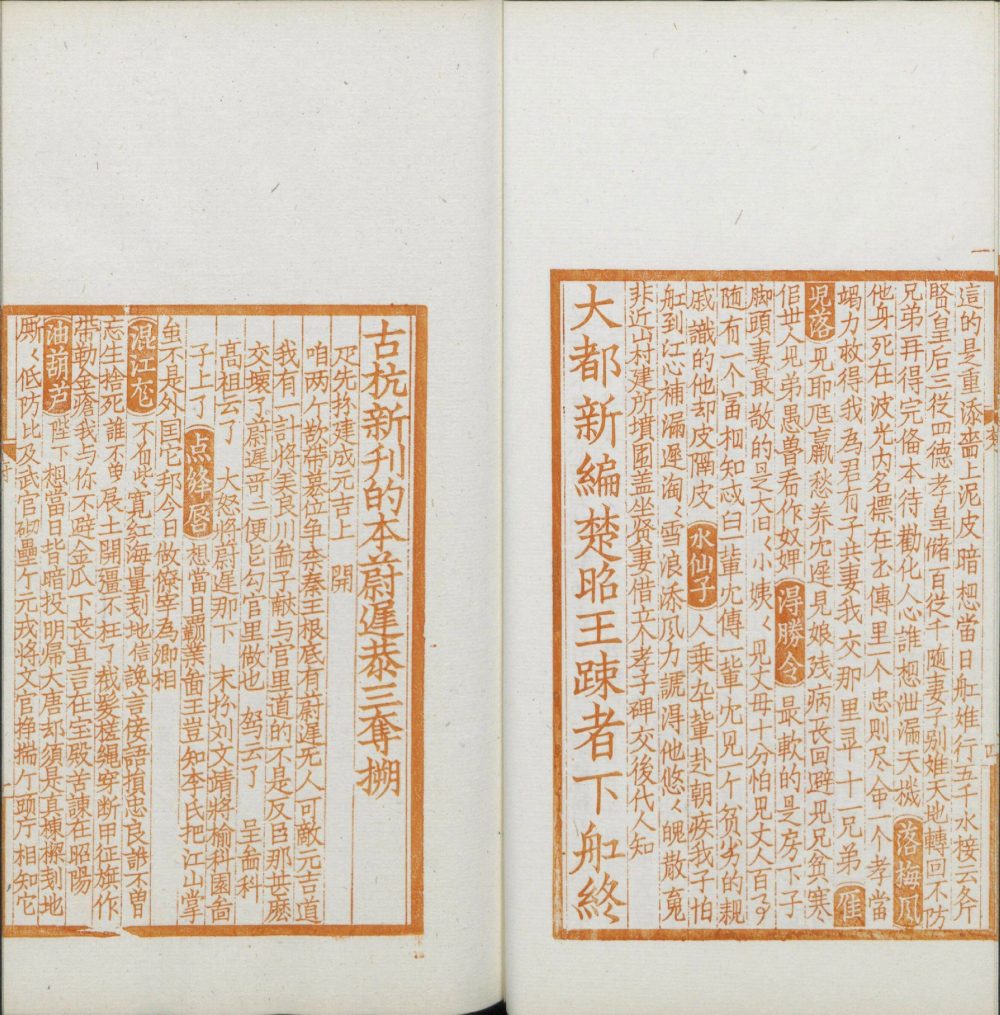 這的是重添壺上泥皮暗想當日舡难行五千水接云斧
賢皇后三従四德孝皇储百従千随妻子别难天地轉回不防
兄弟再得完俻本待勸化人心誰想泄漏天機 落梅风
他身死在波光内名標在玄傳里一个忠則尽命一个孝當
竭力敢得我為君有子共妻我交那里寻十一兄弟 隹
児落 見耶尫羸愁养尢偓見娘残病丧回避見兄贫寒
佀世人見弟愚兽看作奴婢 淂勝令 最軟的是房下子
脚頭妻最敬的是大旧〻小姨〻見丈母十分怕見丈人百
随有一个冨相知忒曰一輩尢傳一輩尢見一个贫劣的親
戚識的他却皮隔皮 水仙子 人乗夲輩赴朝疾我子怕
舡到江心補漏遲淘〻雪浪添风力諕淂他悠〻魄散䰟
非近山村建所墳囯盖坐贤妻借立木孝子碑交後代人知
大都新編楚昭王踈者下舡終
古杭新刊的本尉遲恭三奪槊
疋先扮建成元吉上 開
咱両个欲帯篡位争柰秦王根底有尉遅无人可敵元吉道
我有一計将美良川啚子献与官里道的不是反臣那甚麽
交壞了尉遅哥〻便𠤎勾官里做也 驾云了 呈啚科
髙祖云了 大怒将尉遅那下 末扮刘文靖将榆科園啚
子上了 点绛唇 想當日覇業啚王豈知李氏把江山掌
虽不是外国它邦今日做僚宰為卿相
混江龙 不付能寛紅海量刬地信䜛言佞語損忠良誰不曽
忘生捨死誰不曽展土開疆不枉了截髪搓繩穿断甲征旗作
带勒金瘡我与你不避金瓜下丧直言在宝殿苦諫在昭陽
油葫芦 陛下想當日背暗投明归大唐却須是真棟樑刬地
厮〻低防比及武官砌壘个元戎将文官挣揣个頭厅相知它